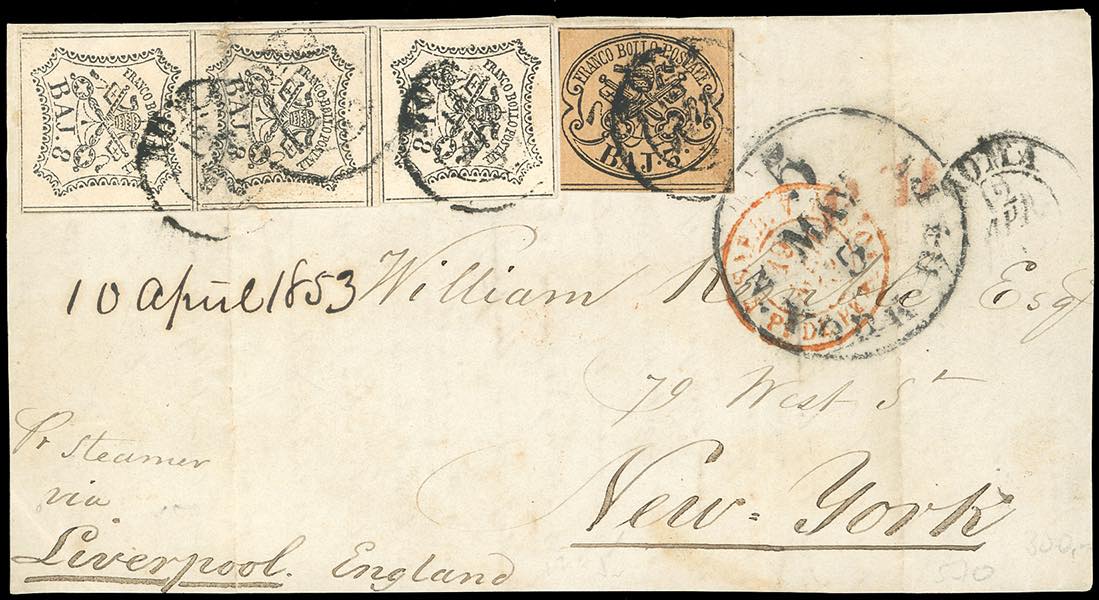 FRANCO BOLLO POSTALE
BAJ 8
FRANCO BOLLO POSTALE
BAJ 8
FRANCO BOLLO POSTALE
BAJ 8
FRANCO BOLLO POSTALE
BAJ. 5.
ROMA
APR
5
MAY
5
YORK
10 april 1853
William Esqr
79 West St
New=York
Pr Steamer
via
Liverpool. England
300,-